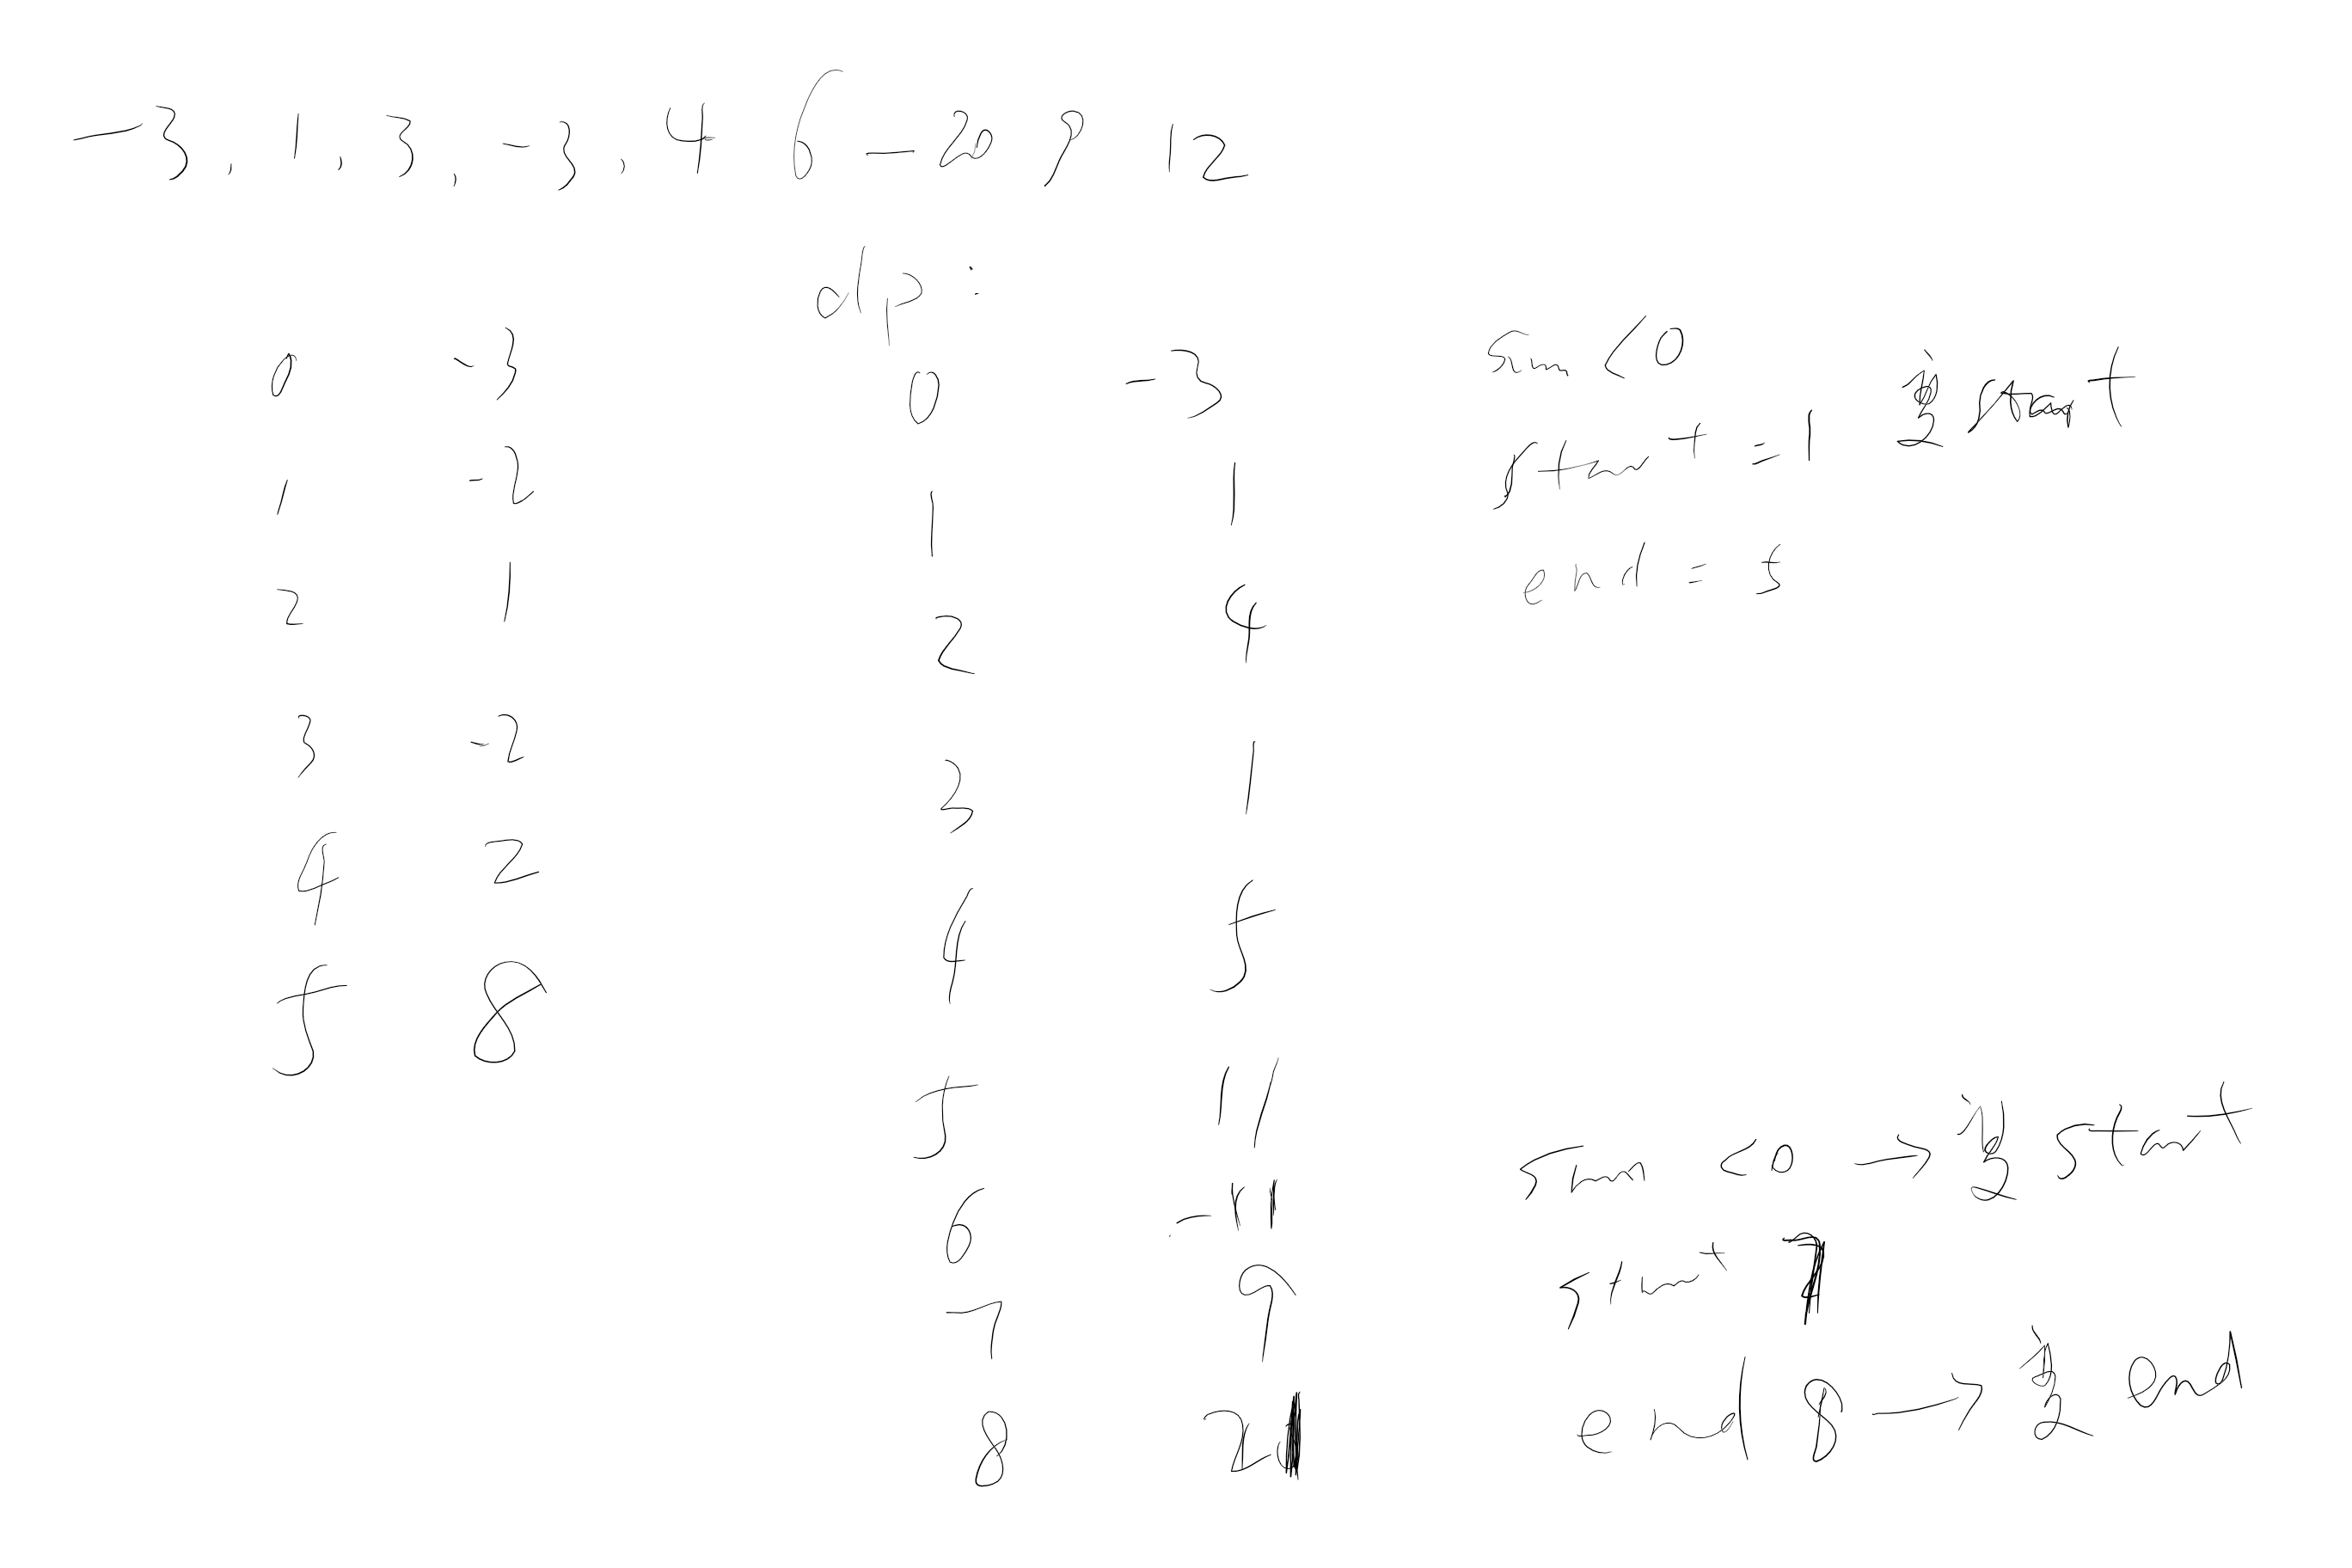 -3 , 1 , 3 , -3 , 4 6 -20 9 12
dp :
0 -3
1 -2
2 1
3 -2
4 2
5 8
0 -3
1 1
2 4
3 1
4 5
5 11
6 -11
7 9
8 21
sum <0
变 start
start = 1
end = 5
sum <0 → 变 start
start 7
end 8 → 变 end